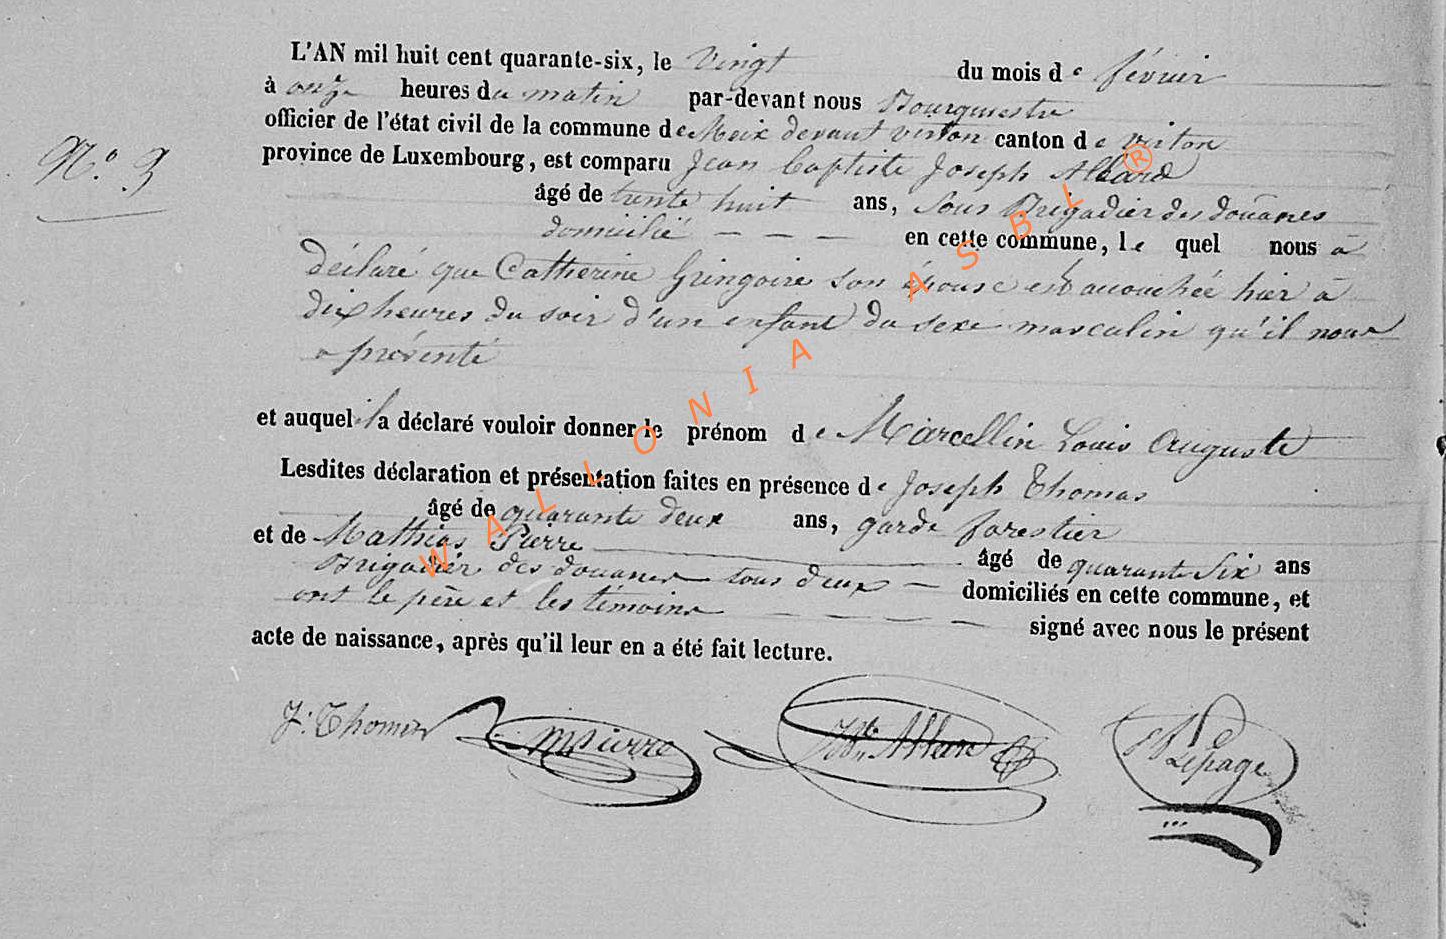 L'AN mil huit cent quarante-six, le Vingt du mois de février
à onze heures du matin par-devant nous Bourgmestre
officier de l'état civil de la commune de Meix devant virton canton de virton
N.° 3
province de Luxembourg, est comparu Jean Baptiste Joseph Allard
âgé de trente huit ans, Sous Brigadier des douânes
domicilié — — — en cette commune, le quel nous à
déclaré que Catherine Gringoire son épouse est acouchée hier à
dix heures du soir d'un enfant du sexe masculin qu'il nous
a présenté
et auquel il a déclaré vouloir donner le prénom de Marcellin Louis Auguste
Lesdites déclaration et présentation faites en présence de Joseph Thomas
âgé de quarante deux ans, garde forestier
et de Mathias Pierre âgé de quarante Six ans
Brigadier des douanes tous deux — domiciliés en cette commune, et
ont le père et les témoins — — — — signé avec nous le présent
acte de naissance, après qu'il leur en a été fait lecture.
J. Thomas mpierre Allard Lepage
WALLONIA ASBL ®